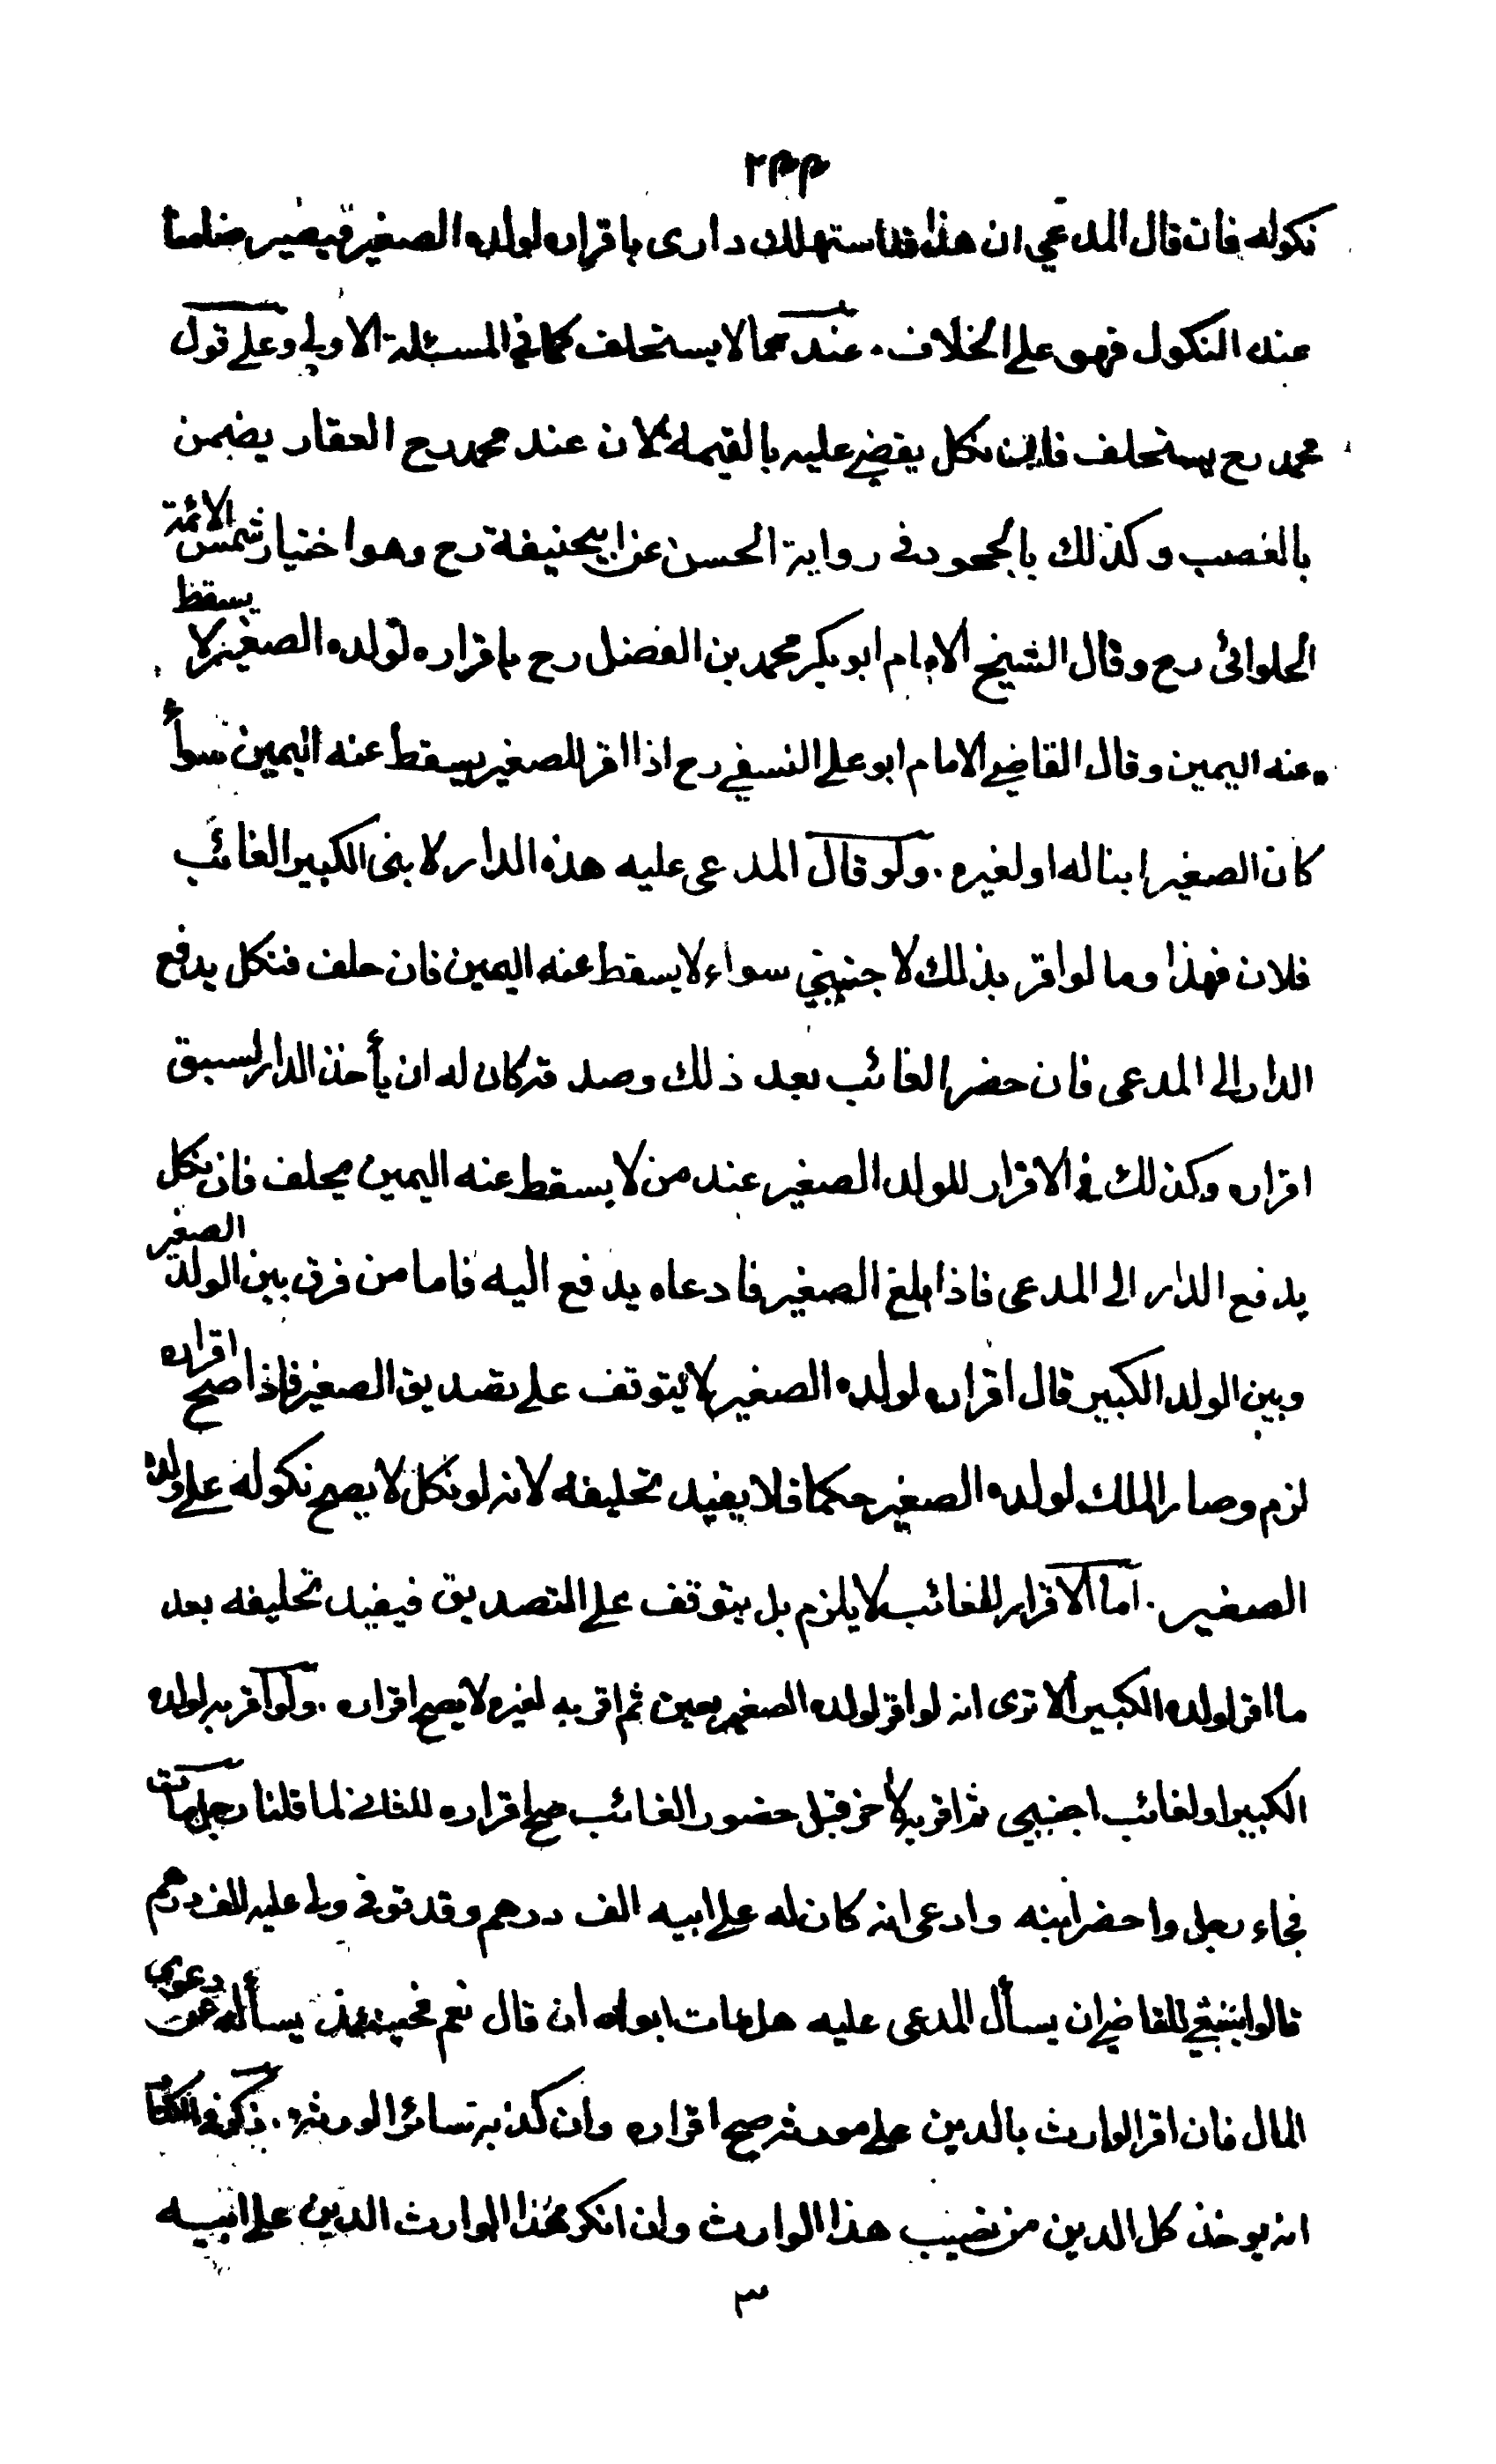 ٢٣٣
نكوله فان قال المدعي ان هذا قد استهلك دارى باقراره لولده الصغير فيصير ضامنا
عند النكول فهو على الخلاف . عندهما لا يستحلف كما في المسئلة الاولى وعلى قول
محمد رح يستحلف فان نكل يقضى عليه بالقيمة لان عند محمد رح العقار يضمن
بالغصب وكذلك بالجحود في رواية الحسن عن ابيحنيفة رح وهو اختيار شمس الائمة
الحلوائى رح وقال الشيخ الامام ابو بكر محمد بن الفضل رح باقراره لولده الصغير لا يسقط
عنه اليمين وقال القاضي الامام ابو علي النسفي رح اذا اقر للصغير يسقط عنه اليمين سوأ
كان الصغير ابنا له او لغيره . ولو قال المدعى عليه هذه الدار لابنى الكبير الغائب
فلان فهذا وما لو اقر بذلك لاجنبي سواء لا يسقط عنه اليمين فان حلف فنكل يدفع
الدار الى المدعى فان حضر الغائب بعد ذلك وصدقه كان له ان يأخذ الدار لسبق
اقراره وكذلك في الاقرار للولد الصغير عند من لا يسقط عنه اليمين يحلف فان نكل
يدفع الدار الى المدعى فاذا بلغ الصغير فادعاه يدفع اليه فاما من فرق بين الولد الصغير
وبين الولد الكبير قال اقراره لولده الصغير لا يتوقف على تصديق الصغير فاذا صح اقراره
لزم وصار الملك لولده الصغير حكما فلا يفيد تحليفه لانه لو نكل لا يصح نكوله على ولده
الصغير . اما الاقرار للغائب لا يلزم بل يتوقف على التصديق فيفيد تحليفه بعد
ما اقر لولده الكبير الا ترى انه لو اقر لولده الصغير بعين ثم اقر به لغيره لا يصح اقراره . ولو اقر به لولده
الكبير او لغائب اجنبي ثم اقر به لآخر قبل حضور الغائب صح اقراره للثاني لما قلنا رجل مات
فجاء رجل واحضر ابنه وادعى انه كان له على ابيه الف درهم وقد توفى وله عليه الف درهم
قالوا ينبغي للقاضي ان يسأل المدعى عليه هل مات ابوك ان قال نعم فحينئذ يسأله عن دعوى
المال فان اقر الوارث بالدين على مورثه صح اقراره وان كذبه سائر الورثة . ذكر في الكتاب
انه يوخذ كل الدين من نصيب هذا الوارث وان انكر هذا الوارث الدين على ابيه
٣